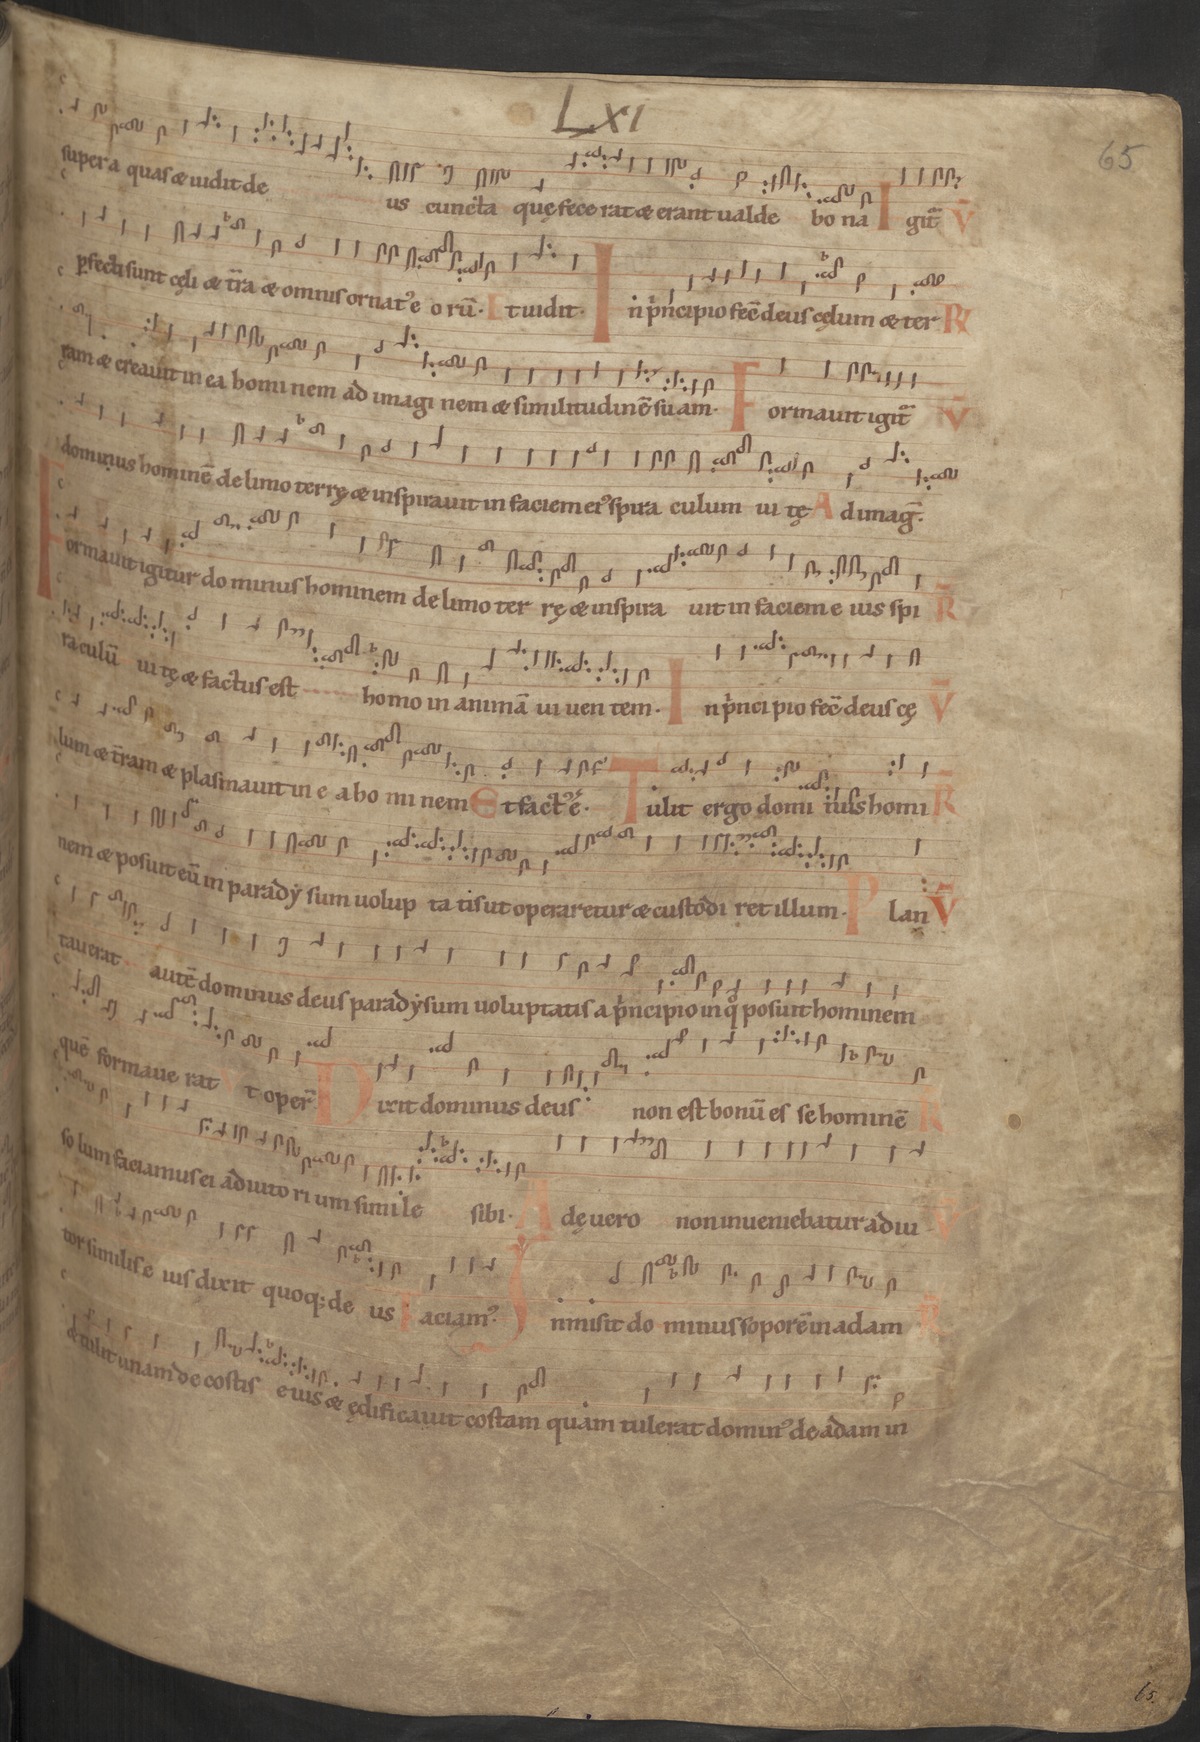 Lxi
65
supera quas & uidit de us cuncta quę fecerat & erant ualde bona Igit̄ V̄
p̱fecti sunt cęli & t̄ra & omnis ornat᷒ eorū. Et uidit. In p̍ncipio fec̄ deus cęlum & ter R
ram & creauit in ea hominem ad imaginem & similitudinē suam. Formauit igit̄ V̄
dominus hominē de limo terrę & inspirauit in faciem ei᷒ spiraculum uitę Ad imaḡ.
Formauit igitur dominus hominem de limo terrę & inspirauit in faciem eius spi R̄
raculū uitę & factus est homo in animā uiuentem. In p̍ncipio fec̄ deus cę V̄
lum & t̄ram & plasmauit in ea hominem Et fact᷒ ē. Tulit ergo dominus homi R̄
nem & posuit eū in paradẏsum uoluptatis ut operaretur & custodiret illum. Plan V̄
tauerat autē dominus deus paradẏsum uoluptatis a p̍ncipio in qͦ posuit hominem
quē formauerat Vt oper̄ Dixit dominus deus non est bonū esse hominē R
solum faciamus ei adiutorium simile sibi. Adę uero non inueniebatur adiu V̄
tor similis eius dixit quoq; deus Faciam᷒. Inmisit dominus soporē in adam R̄
& tulit unam de costis eius & ędificauit costam quam tulerat domin᷒ de adam in
65.